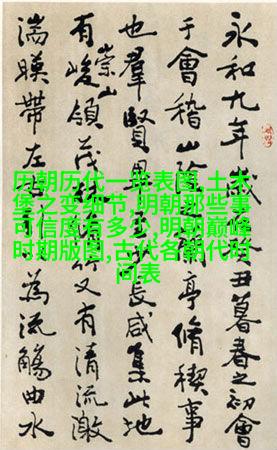 永和九年歲丑暮春之初會
于會稽山陰亭脩稧事
也羣賢畢長咸集此地
有崇山峻領茂林竹又有清流激
湍暎帶左為流觴曲水
历朝历代一览表图,土木
堡之变细节,明朝那些事
可信度有多少,明朝巅峰
时期版图,古代各朝代时
间表